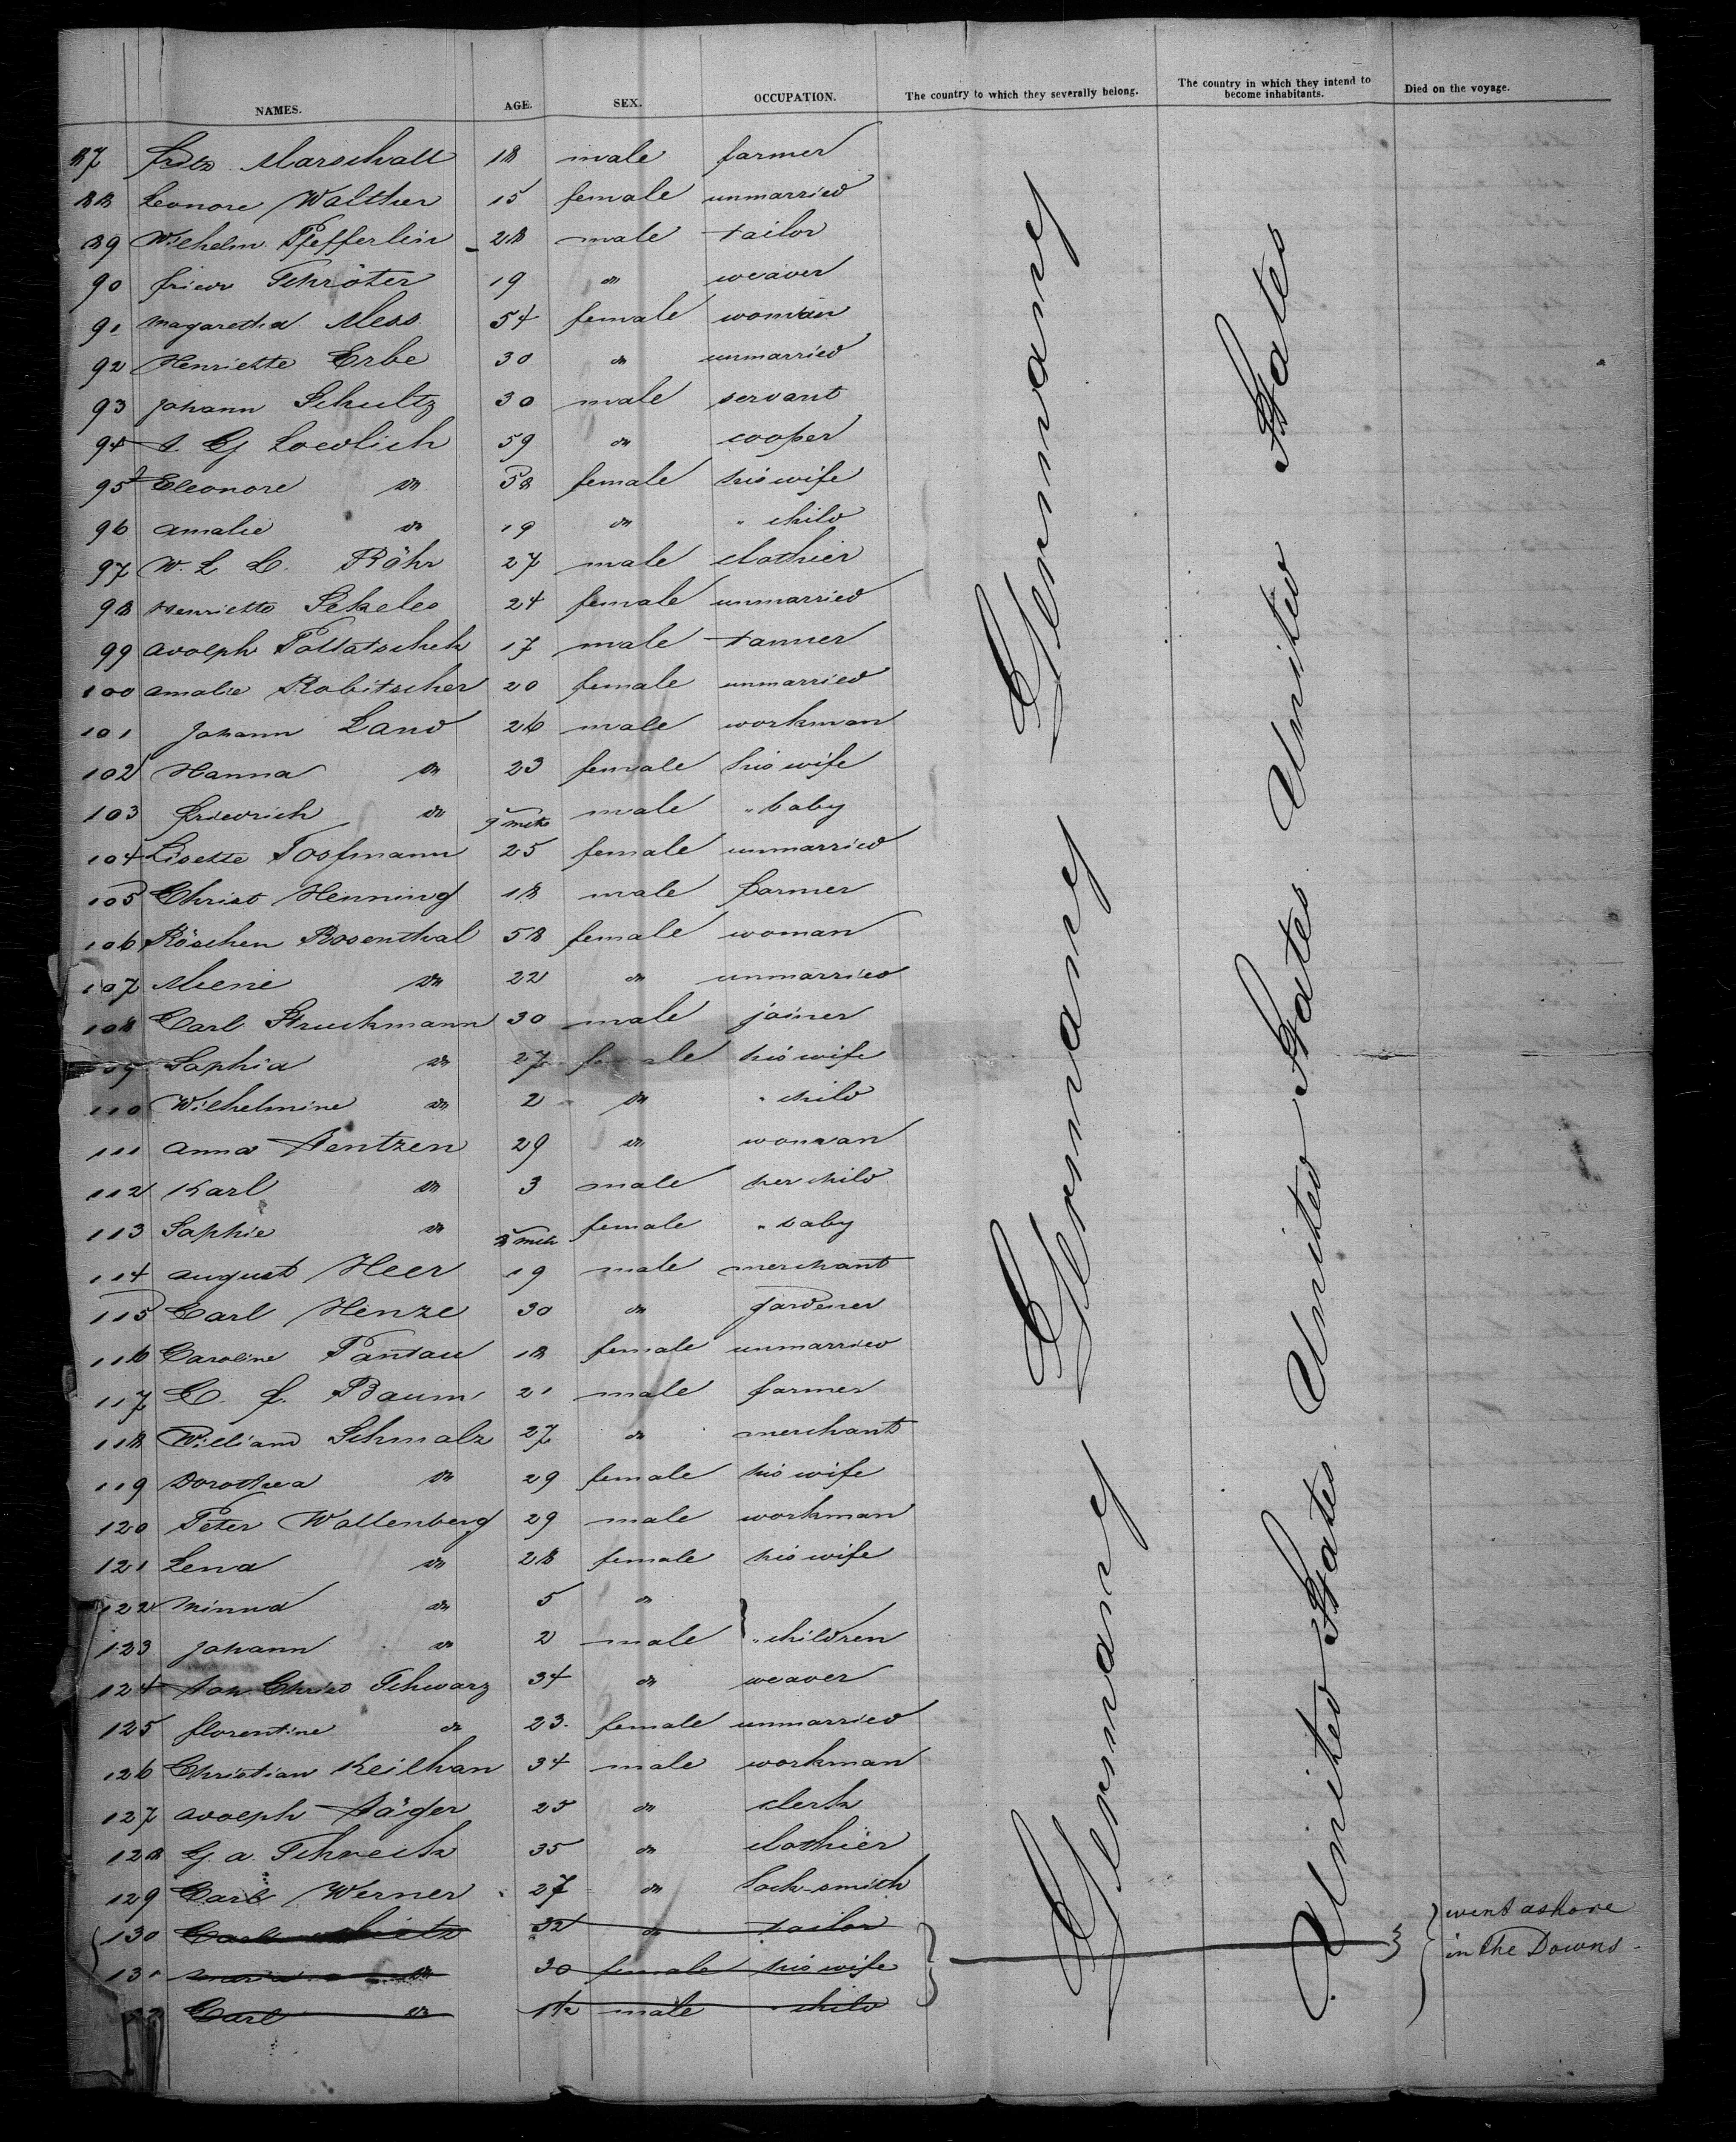 NAMES. AGE. SEX. OCCUPATION. The country to which they severally belong. The country in which they intend to become inhabitants. Died on the voyage.
87 Fritz Marschall 18 male farmer
88 Leonore Walther 15 female unmarried
89 Wilhelm Pfefferlein 28 male tailor
90 Friedr Schröter 19 do weaver
91 Magaretha Mess 54 female woman
92 Henriette Erbe 30 do unmarried
93 Johann Schultz 30 male servant
94 J. G. Loedlich 59 do cooper
95 Eleonore do 58 female his wife
96 Amalie do 19 do " child
97 W. L. C. Röhr 27 male clothier
98 Henriette Sekeles 24 female unmarried
99 Adolph Pollatschek 17 male tanner
100 Amalie Robitscher 20 female unmarried
101 Johann Land 26 male workman
102 Hanna do 23 female his wife
103 Friedrich do 9 mth male " baby
104 Lisette Topfmann 25 female unmarried
105 Christ Henning 18 male farmer
106 Röschen Rosenthal 58 female woman
107 Miene do 22 do unmarried
108 Carl Struckmann 30 male joiner
109 Sophia do 27 female his wife
110 Wilhelmine do 2 do " child
111 Anna Jentzen 29 do woman
112 Karl do 3 male her child
113 Sophie do 8 mth female " baby
114 August Heer 19 male merchant
115 Carl Henze 30 do gardener
116 Caroline Pantau 18 female unmarried
117 C. F. Baum 21 male farmer
118 William Schmalz 27 do merchant
119 Dorothea do 29 female his wife
120 Peter Wallenberg 29 male workman
121 Lena do 28 female his wife
122 Minna do 5 do
123 Johann do 2 male " children
124 Joh. Christ Schwarz 34 do weaver
125 Florentine do 23 female unmarried
126 Christian Keilhan 34 male workman
127 Adolph Jäger 25 do clerk
128 G. A. Schreck 35 do clothier
129 Carl Werner 27 do lock-smith
130 Carl 32 do tailor
131 Maria do 30 female his wife
Carl do 1½ male child
Germany Germany Germany
United States United States United States
went ashore
in the Downs